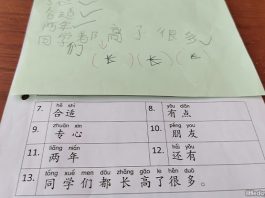 合适✓
两年✓
同学都高了很多
们
(长)(长)(
7. hé shì 合适
8. yǒu diǎn 有点
9. zhuān xīn 专心
10. péng you 朋友
11. liǎng nián 两年
12. hái yǒu 还有
13. tóng xué men dōu zhǎng gāo le hěn duō
同学们都长高了很多。